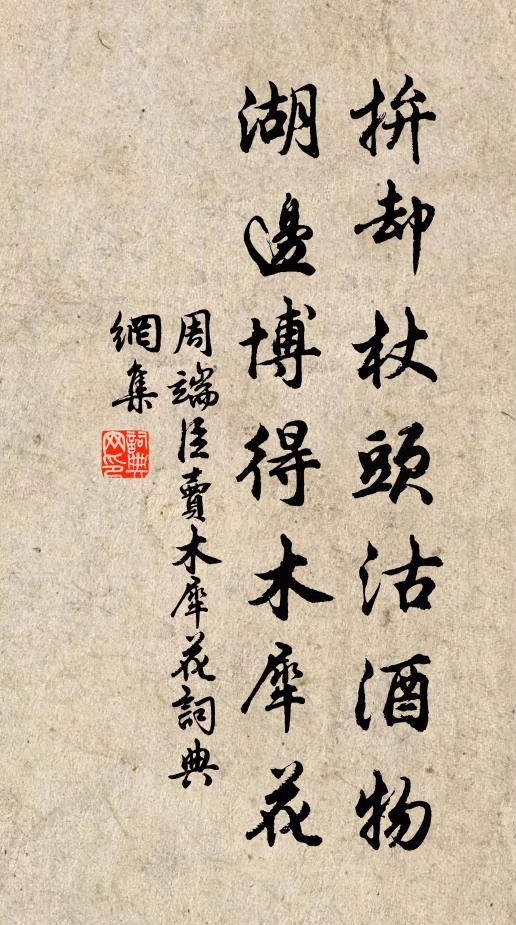 拚却杖頭沽酒物
湖邊博得木犀花
周端臣賣木犀花詞典
網集
詞典网印